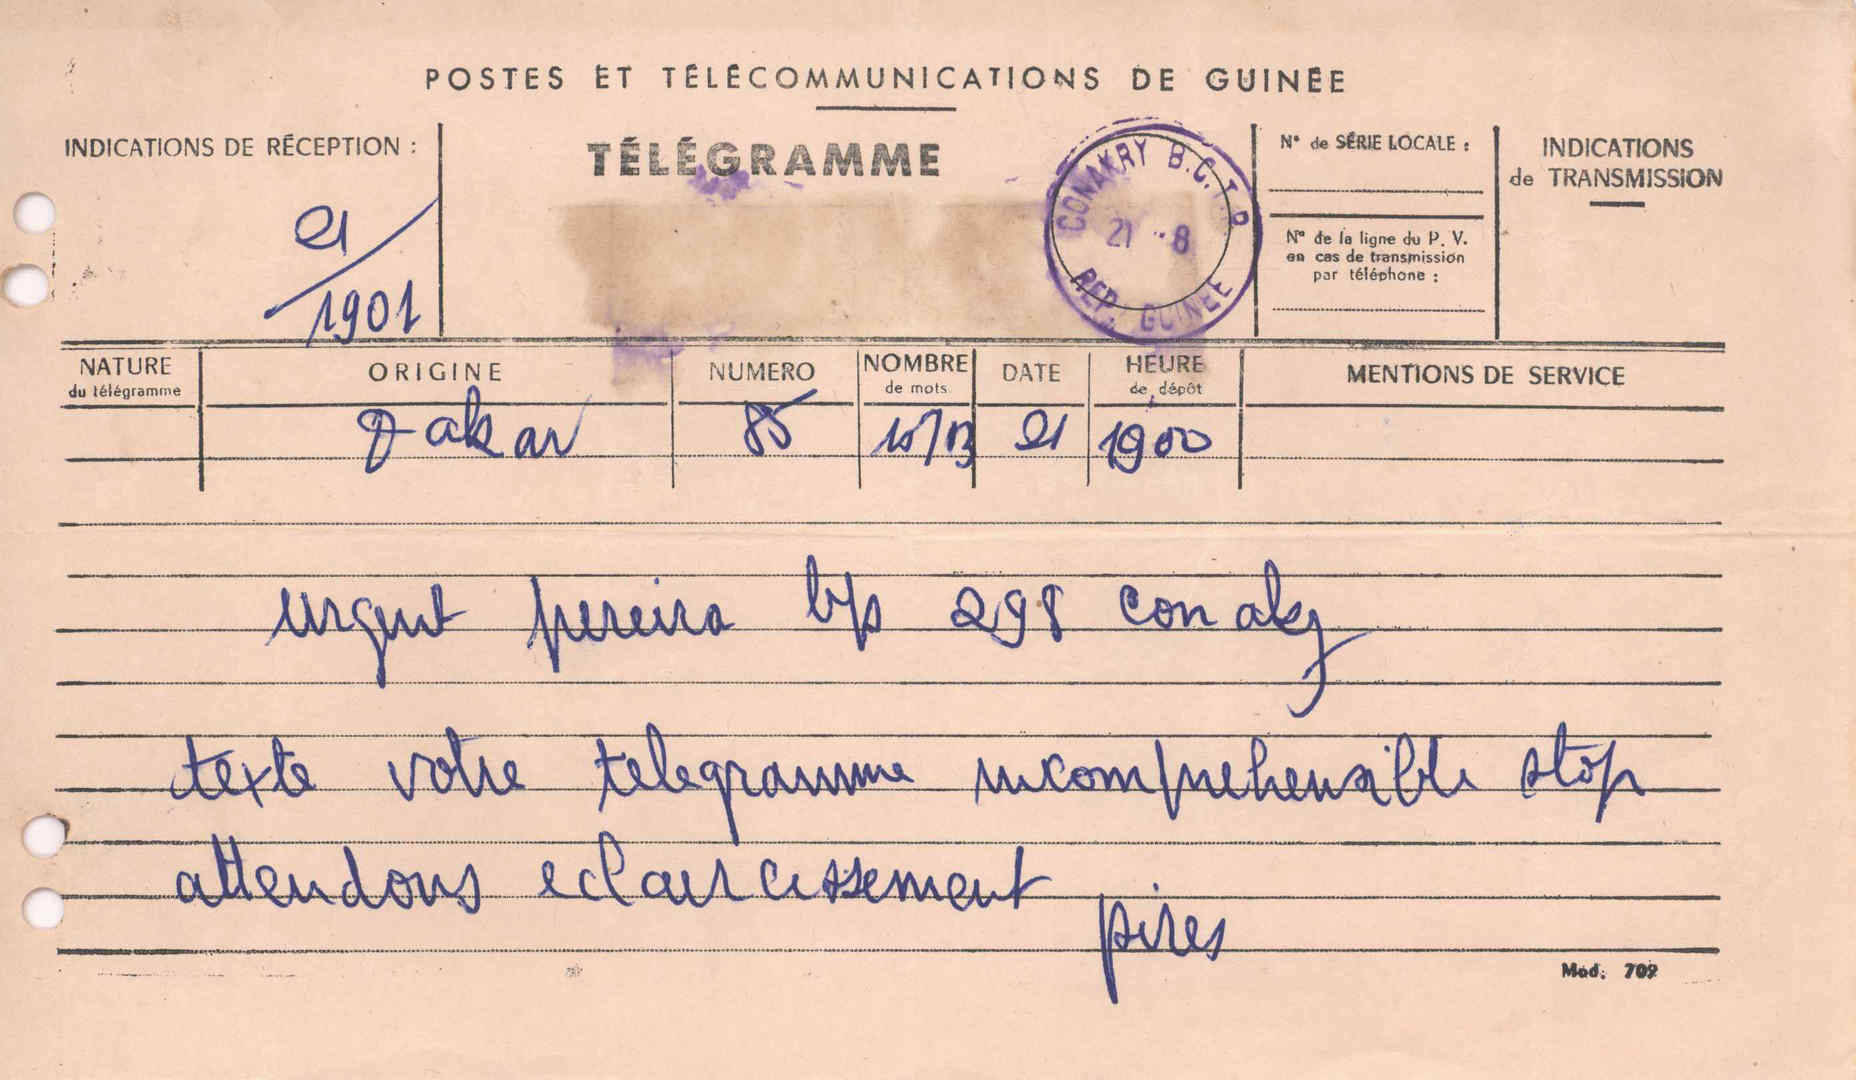 POSTES ET TÉLÉCOMMUNICATIONS DE GUINÉE
INDICATIONS DE RÉCEPTION :
21/1901
TÉLÉGRAMME
CONAKRY B.C.T.R
21 -8
REP. GUINÉE
N° de SÉRIE LOCALE :
N° de la ligne du P. V.
en cas de transmission
par téléphone :
INDICATIONS
de TRANSMISSION
NATURE
du télégramme
ORIGINE
NUMERO
NOMBRE
de mots
DATE
HEURE
de dépôt
MENTIONS DE SERVICE
Dakar 85 10/13 21 1900
urgent pereira bp 298 conaky
texte votre telegramme incomprehensible stop
attendons eclaircissement
pires
Mod. 702